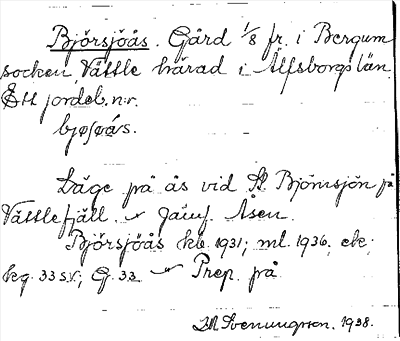 Björsjöås. Gård 1/8 fr. i Bergum
socken, Vättle härad i Älfsborgs län
Ett jordeb.n:r.
bjøʃøås.
Läge på ås vid St. Björnsjön på
Vättlefjäll. Jämf. Åsen.
Björsjöås kb. 1931; ml. 1936, ek.
kg. 33 sv; G. 33. Prep. på
Svenungsson. 1938.